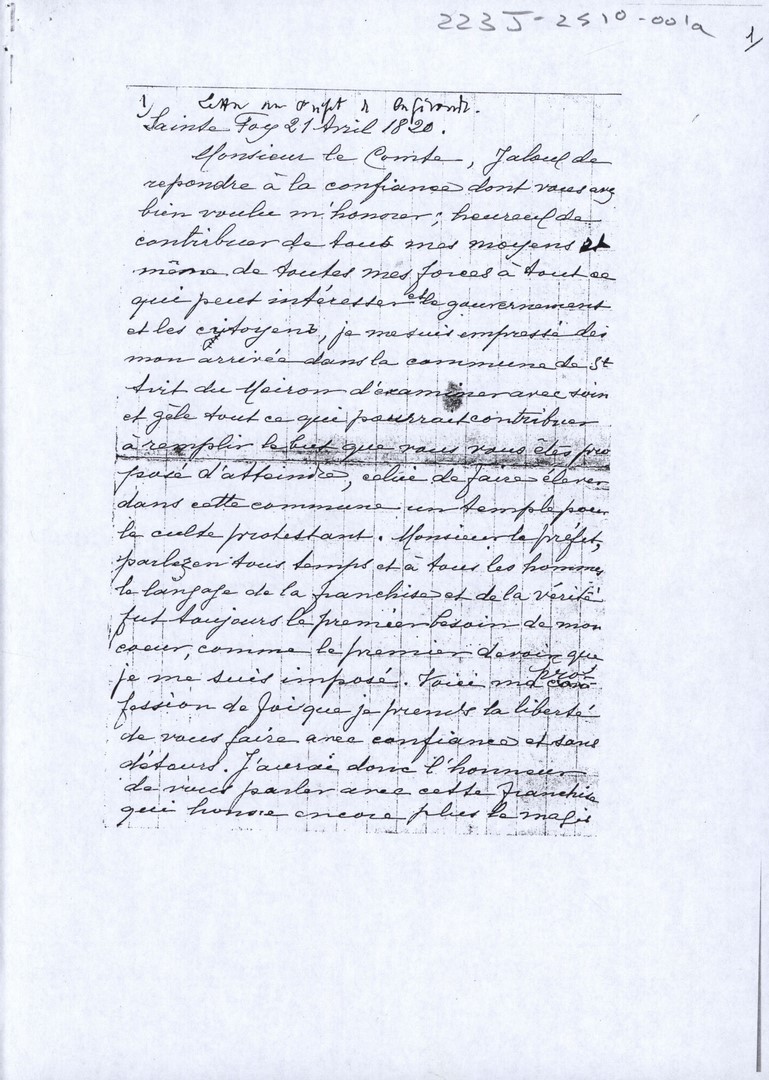 223 J-2510-001a
1/
1) Lettre au Préfet de la Gironde.
Sainte Foy 21 Avril 1820.
Monsieur le Comte, Jaloux de
repondre à la confiance dont vous avez
bien voulu m'honorer; heureux de
contribuer de tous mes moyens et
même de toutes mes forces à tout ce
qui peut intéresser et le gouvernement
et les citoyens, je me suis empressé dès
mon arrivée dans la commune de St
Avit du Moiron d'examiner avec soin
et zèle tout ce qui pourrait contribuer
à remplir le but que vous vous êtes pro
posé d'atteindre, celui de faire élever
dans cette commune un temple pour
le culte protestant. Monsieur le préfet,
parlez en tous temps et à tous les hommes
le langage de la franchise et de la vérité
fut toujours le premier besoin de mon
coeur, comme le premier devoir que
je me suis imposé. Voici ma pro
fession de foi que je prends la liberté
de vous faire avec confiance et sans
détours. J'aurai donc l'honneur
de vous parler avec cette franchise
qui honore encore plus le magis